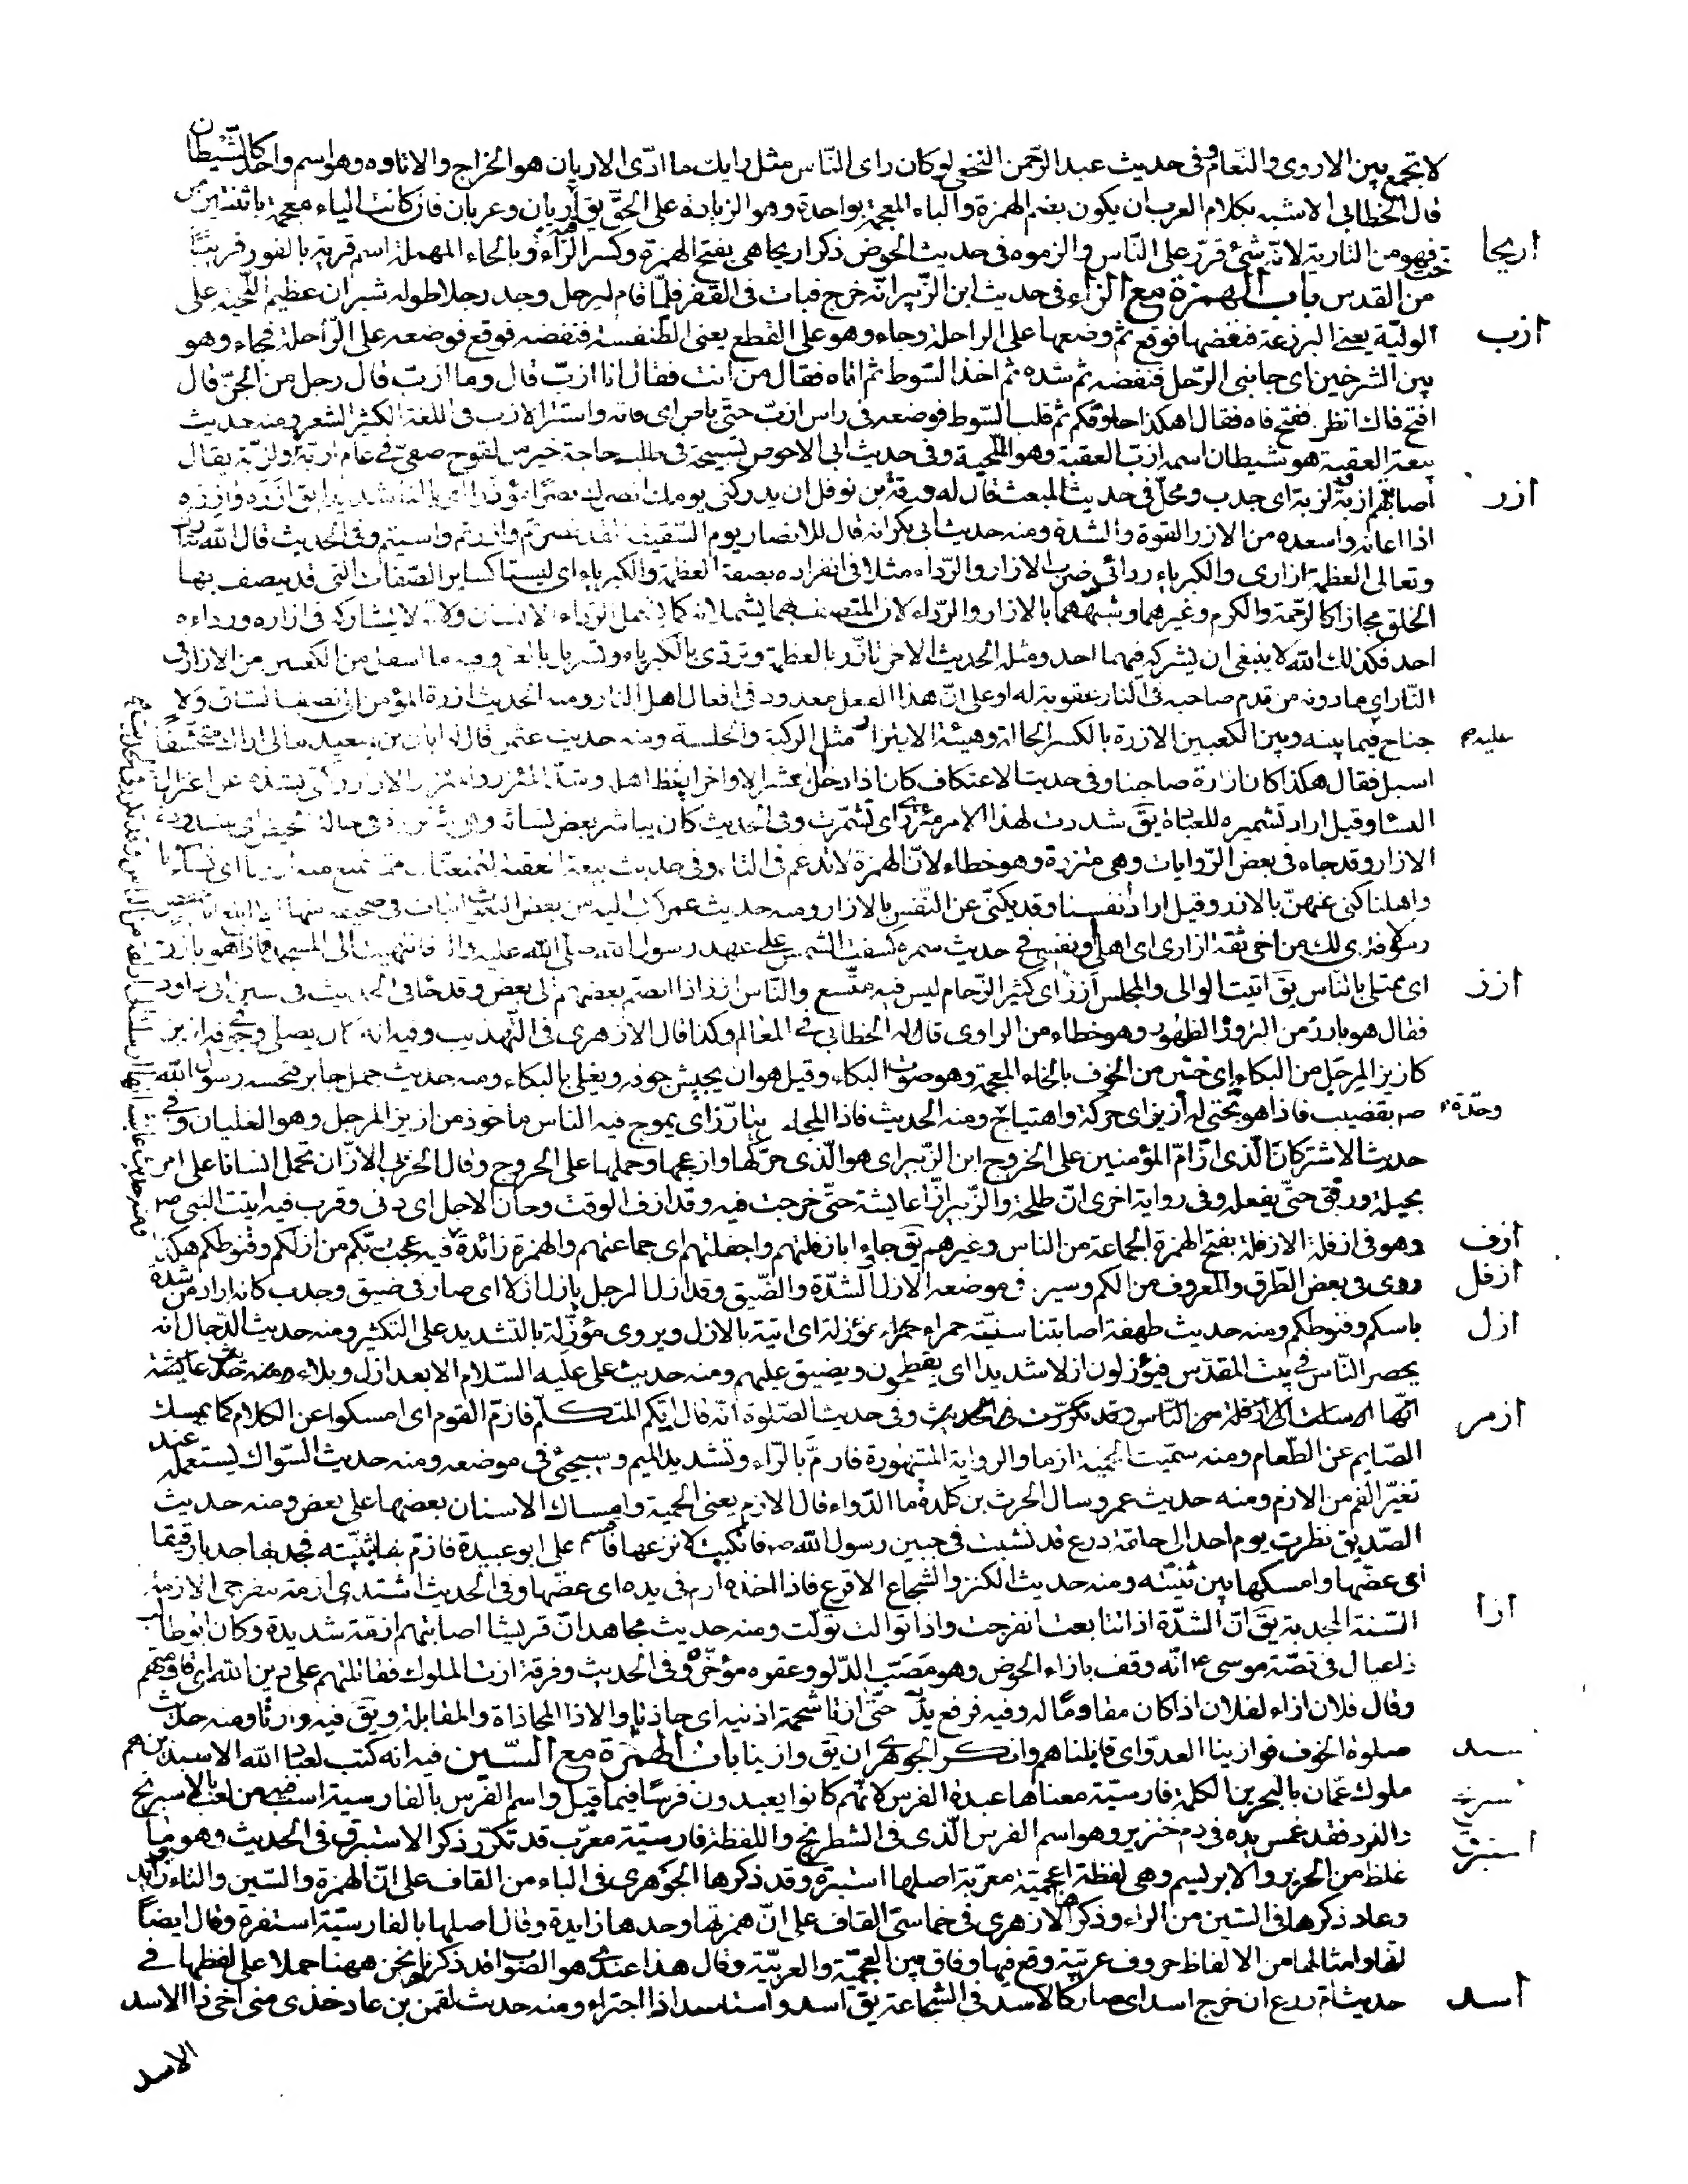 لا تجمع بين الاروى والنعام وفى حديث عبد الرّحمن النخعى لو كان راى النّاس مثل رايك ما ادّى الاريان هو الخراج والاتاوه وهو اسم واحد كالشّيطان
قال الخطابى الاشبه بكلام العرب ان يكون بضم الهمزة والباء المعجمة بواحدة وهو الزيادة على الحقّ يق اربان وعربان فان كانت الياء معجمة باثنتين من
تحت فهو من التارية لانّه شئ قرّر على النّاس والزموه فى حديث الحوض ذكر اريحا هى بفتح الهمزة وكسر الرّاء وبالحاء المهملة اسم قرية بالغور قريبًا
اريحا
من القدس باب الهمزة مع الزاء فى حديث ابن الزّبير انّه خرج فبات فى القفر فلمّا قام ليرحل وجد رجلا طوله شبران عظيم اللّحية على
ازب
الوليّة يعنى البرذعة فنفضها فوقع ثم وضعها على الراحلة وجاء وهو على القطع يعنى الطّنفسة فنفضه فوقع فوضعه على الرّاحلة فجاء وهو
بين الشرخين اى جانبى الرّحل فنفضه ثم شده ثم اخذ السّوط ثم اتاه فقال من انت فقال انا ازبّ قال وما ازبّ قال رجل من الجنّ قال
افتح فاك انظر ففتح فاه فقال اهكذا حلوقكم ثم قلب السّوط فوضعه فى راس ازبّ حتّى باص اى فاته واستتر الازب فى اللغة الكثير الشعر ومنه حديث
بيعة العقبة هو شيطان اسمه ازبّ العقبة وهو الحّية وفى حديث ابى الاحوص تسبيحة فى طلب حاجة خير من لقوح صفىّ فى عام ازبة او لزبة يقال
اصابتهم ازبة ولزبة اى جدب ومحل فى حديث المبعث قال له ورقة بن نوفل ان يدركنى يومك انصرك نصرًا مؤزّرا اى بالغا شديدا يق ازّره وآزره
ازر
اذا اعانه واسعده من الازر القوة والشدة ومنه حديث ابى بكر انه قال للانصار يوم السّقيفة لقد نصرتم وآزرتم وآسيتم وفى الحديث قال الله تبارك
وتعالى العظمة ازارى والكبرياء ردائى ضرب الازار والرّداء مثلا فى انفراده بصفة العظمة والكبرياء اى ليستا كساير الصّفات التى قد يتصف بها
الخلق مجازا كالرّحمة والكرم وغيرهما وشبّههما بالازار والرّداء لان المتصف بهما يشملانه كما يشمل الرّداء الانسان ولانّه لا يشاركه فى ازاره ورداءه
احد فكذلك الله لا ينبغى ان يشركه فيهما احد ومثله الحديث الاخر تازّر بالعظمة وتردّى بالكبرياء وتسربل بالعز وفيه ما اسفل من الكعبين من الازار فى
النّار اى ما دونه من قدم صاحبه فى النار عقوبة له او على انّ هذا الفعل معدود فى افعال اهل النار ومنه الحديث ازرة المؤمن الى نصف السّاق ولا
جناح فيما بينه وبين الكعبين الازرة بالكسر الحالة وهيئة الايتزار مثل الركبة والجلسة ومنه حديث عثمن قال له ابان بن سعيد مالى اراك متحشّفًا
عليه م
اسبل فقال هكذا كان ازرة صاحبنا وفى حديث الاعتكاف كان اذا دخل العشر الاواخر ايقظ اهله وشدّ المئزر المئزر الازار وكنّى بشدّه عن اعتزال
النّساء وقيل اراد تشميره للعبادة يقَ شددت لهذا الامر مئزرى اى تشمّرت وفى الحديث كان يباشر بعض نسائه وهى مؤتزرة فى حالة الحيض اى مشدودة
الازار وقد جاء فى بعض الرّوايات وهى متزرة وهو خطاء لانّ الهمزة لا تدغم فى التاء وفى حديث بيعة العقبة لنمنعنّك مما نمنع منه ازرنا اى نساءنا
واهلنا كنى عنهنّ بالازر وقيل اراد انفسنا وقد يكنّى عن النّفس بالازار ومنه حديث عمر كتب اليه من بعض البعوث ابيات فى صحيفة منها الا ابلغ ابا حفص
رسولا فدى لك من اخى ثقة ازارى اى اهلى ونفسى فى حديث سمرة كسفت الشمس على عهد رسول الله صلّى الله عليه واله فانتهيت الى المسجد فاذا هو بازز
اى ممتلى بالنّاس يقَ اتيت الوالى والمجلس ازز اى كثير الزّحام ليس فيه متّسع والنّاس ازز اذا انضم بعضهم الى بعض وقد جاء فى الحديث فى سنن ابى داود
ازز
فقال هو بارز من البروز الظهور وهو خطاء من الراوى قاله الخطابى فى المعالم وكذا قال الازهرى فى التّهذيب وفيه انه كان يصلى وبجوفه ازيز
كازيز المرجل من البكاء اى خنين من الخوف بالخاء المعجمة وهو صوت البكاء وقيل هو ان يجيش جوفه ويغلى بالبكاء ومنه حديث جمل جابر فنخسه رسول الله
صم بقضيب فاذا هو تحتى له ازيز اى حركة واهتياج ومنه الحديث فاذا المجلس يتازّز اى يموج فيه الناس ماخوذ من ازيز المرجل وهو الغليان وفى
وحدّة
حديث الاشتر كان الّذى ازّ امّ المؤمنين على الخروج ابن الزّبير اى هو الّذى حرّكها وازعجها وحملها على الخروج وقال الحربى الازّ ان تحمل انسانا على امر
بحيلة ورفق حتّى يفعله وفى رواية اخرى انّ طلحة والزّبير ازّا عايشة حتّى خرجت فيه وقد ازف الوقت وحان الاجل اى دنى وقرب فيه اتيت النّبى صم
وهو فى ازفلة الازفلة بفتح الهمزة الجماعة من الناس وغيرهم يقَ جاءوا بازفلتهم واجفلتهم اى جماعتهم والهمزة زائدة فيه عجب ربّكم من ازلكم وقنوطكم هكذا
ازف
روى فى بعض الطّرق والمعروف من الكم وسير فى موضعه الازل الشّدّة والضّيق وقد ازل الرجل يازل ازلا اى صار فى ضيق وجدب كانه اراد من شدّة
ازفل
باسكم وقنوطكم ومنه حديث طهفة اصابتنا سنيّة حمراء مؤزلة اى اتية بالازل ويروى مؤزّلة بالتشديد على التكثير ومنه حديث الدّجال انه
ازل
يحصر النّاس فى بيت المقدّس فيؤزلون ازلا شديدا اى يقحطون ويضيق عليهم ومنه حديث على عليه السّلام الا بعد ازل وبلاء ومنه حديث عايشة
انّها ارسلت الى ازفلة من النّاس وقد تكرّرت فى الحديث وفى حديث الصّلوة انّه قال ايّكم المتكلّم فازم القوم اى امسكوا عن الكلام كما يمسك
ازمر
الصّايم عن الطّعام ومنه سمّيت الحمية ازما والرواية المشهورة فارمّ بالرّاء وتشديد الميم وسيجئ فى موضعه ومنه حديث السّواك يستعمله عند
تغيّر الفم من الازم ومنه حديث عمر وسال الحرث بن كلدة ما الدّواء قال الازم يعنى الحمية وامساك الاسنان بعضها على بعض ومنه حديث
الصّديق نظرت يوم احد الى حلقة درع قد نشبت فى جبين رسول الله صم فانكببت لانزعها فاقسم على ابو عبيدة فازم بها بثنيّته فجذبها جذبا رفيقا
اى عضّها وامسكها بين ثنيّتيه ومنه حديث الكنز والشجاع الاقرع فاذا اخذه ازم فى يده اى عضّها وفى الحديث اشتدى ازمة تنفرجى الازمة
السّنة المجدبة يقَ انّ الشدّة اذا تتابعت انفرجت واذا توالت تولّت ومنه حديث مجاهد انّ قريشا اصابتهم ازمة شديدة وكان ابو طالب
ازا
ذا عيال فى قصّة موسى ع انّه وقف بازاء الحوض وهو مَصَبّ الدّلو وعقره مؤخّره وفى الحديث وفرقة ازت الملوك فقاتلتهم على دين الله اى قاومتهم
وقال فلان ازاء لفلان اذا كان مقاومًا له وفيه فرفع يديه حتّى ازتا شحمة اذنيه اى حاذتا والازا المحاذاة والمقابلة ويقَ فيه وازتا ومنه حديث
صلوة الخوف فوازينا العدوّ اى قابلناهم وانكر الجوهرى ان يق وازينا باب الهمزة مع السّين فيه انه كتب لعباد الله الاسبذين هم
سبد
ملوك عمّان بالبحرين الكلمة فارسيّة معناها عبدة الفرس لانّهم كانوا يعبدون فرسًا فيما قيل واسم الفرس بالفارسية اسب فيه من لعب بالاسبرنج
والنرد فقد غمس يده فى دم خنزير وهو اسم الفرس الّذى فى الشطرنج واللفظة فارسيّة معرّب قد تكرّر ذكر الاستبرق فى الحديث وهو ما
استبرق
غلظ من الحرير والابريسم وهى لفظة اعجميّة معرّبة اصلها استبرة وقد ذكرها الجوهرى فى الباء من القاف على انّ الهمزة والسّين والتاء زوايد
وعاد ذكرها فى السّين من الراء وذكرها الازهرى فى خماسىّ القاف على انّ همزتها وحدها زايدة وقال اصلها بالفارسيّة استفرة وقال ايضًا
انها وامثالها من الالفاظ حروف عربيّة وقع فيها وفاق بين العجميّة والعربيّة وقال هذا عندى هو الصّواب فذكرناها نحن ههنا حملا على لفظها فى
حديث ام زرع ان خرج اسد اى صار كالاسد فى الشجاعة يقَ اسد واستاسد اذا اجترء ومنه حديث لقمن بن عاد خذى منى اخى ذا الاسد
اسد
الاسد